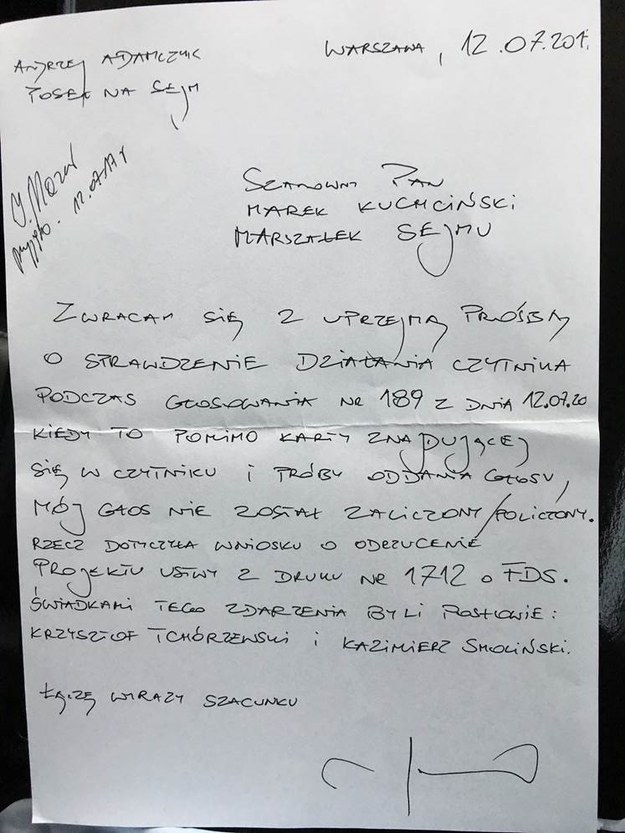 ANDRZEJ ADAMCZYK
POSEŁ NA SEJM
WARSZAWA, 12.07.201
12.07.17 r
SZANOWNY PAN
MAREK KUCHCIŃSKI
MARSZAŁEK SEJMU
ZWRACAM SIĘ Z UPRZEJMĄ PROŚBĄ
O SPRAWDZENIE DZIAŁANIA CZYTNIKA
PODCZAS GŁOSOWANIA NR 189 Z DNIA 12.07.20
KIEDY TO POMIMO KARTY ZNAJDUJĄCEJ
SIĘ W CZYTNIKU I PRÓBY ODDANIA GŁOSU,
MÓJ GŁOS NIE ZOSTAŁ ZALICZONY/POLICZONY.
RZECZ DOTYCZYŁA WNIOSKU O ODRZUCENIE
PROJEKTU USTWY Z DRUKU NR 1712 O FDS.
ŚWIADKAMI TEGO ZDARZENIA BYLI POSŁOWIE:
KRZYSZTOF TCHÓRZEWSKI I KAZIMIERZ SMOLIŃSKI.
ŁĄCZĘ WYRAZY SZACUNKU